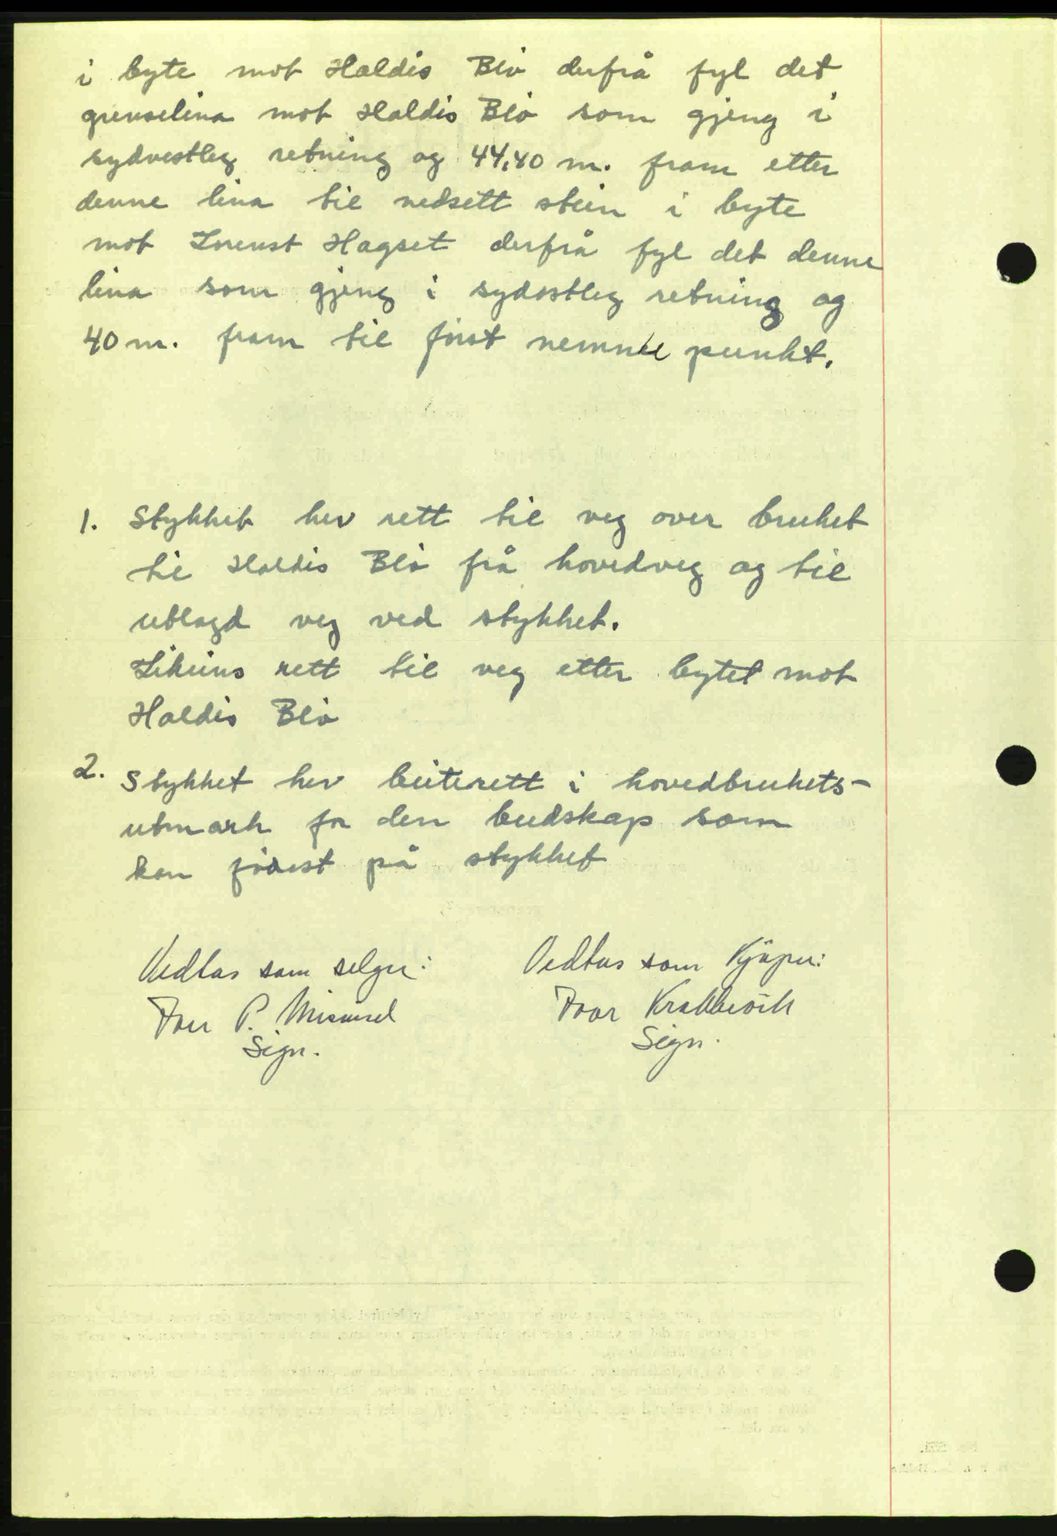 i byte mot Haldis Blö derfrå fyl det
grenselina mot Haldis Blö som gjeng i
sydvestleg retning og 44,40 m. fram etter
denne lina til nedsett stein i byte
mot Hagset derfrå fyl det denne
lina som gjeng i sydostleg retning og
40 m. fram til först nemnde punkt.
1. Stykket hev rett til veg over bruket
til Haldis Blö frå hovedveg og til
utlagd veg ved stykket.
Likeins rett til veg etter bytet mot
Haldis Blö
2. Stykket hev beiterett i hovedbrukets-
utmark for den budskap som
kan födest på stykket
Vedtas som selger:
P.
Sign.
Vedtas som Kjöper:
Ivar
Sign.